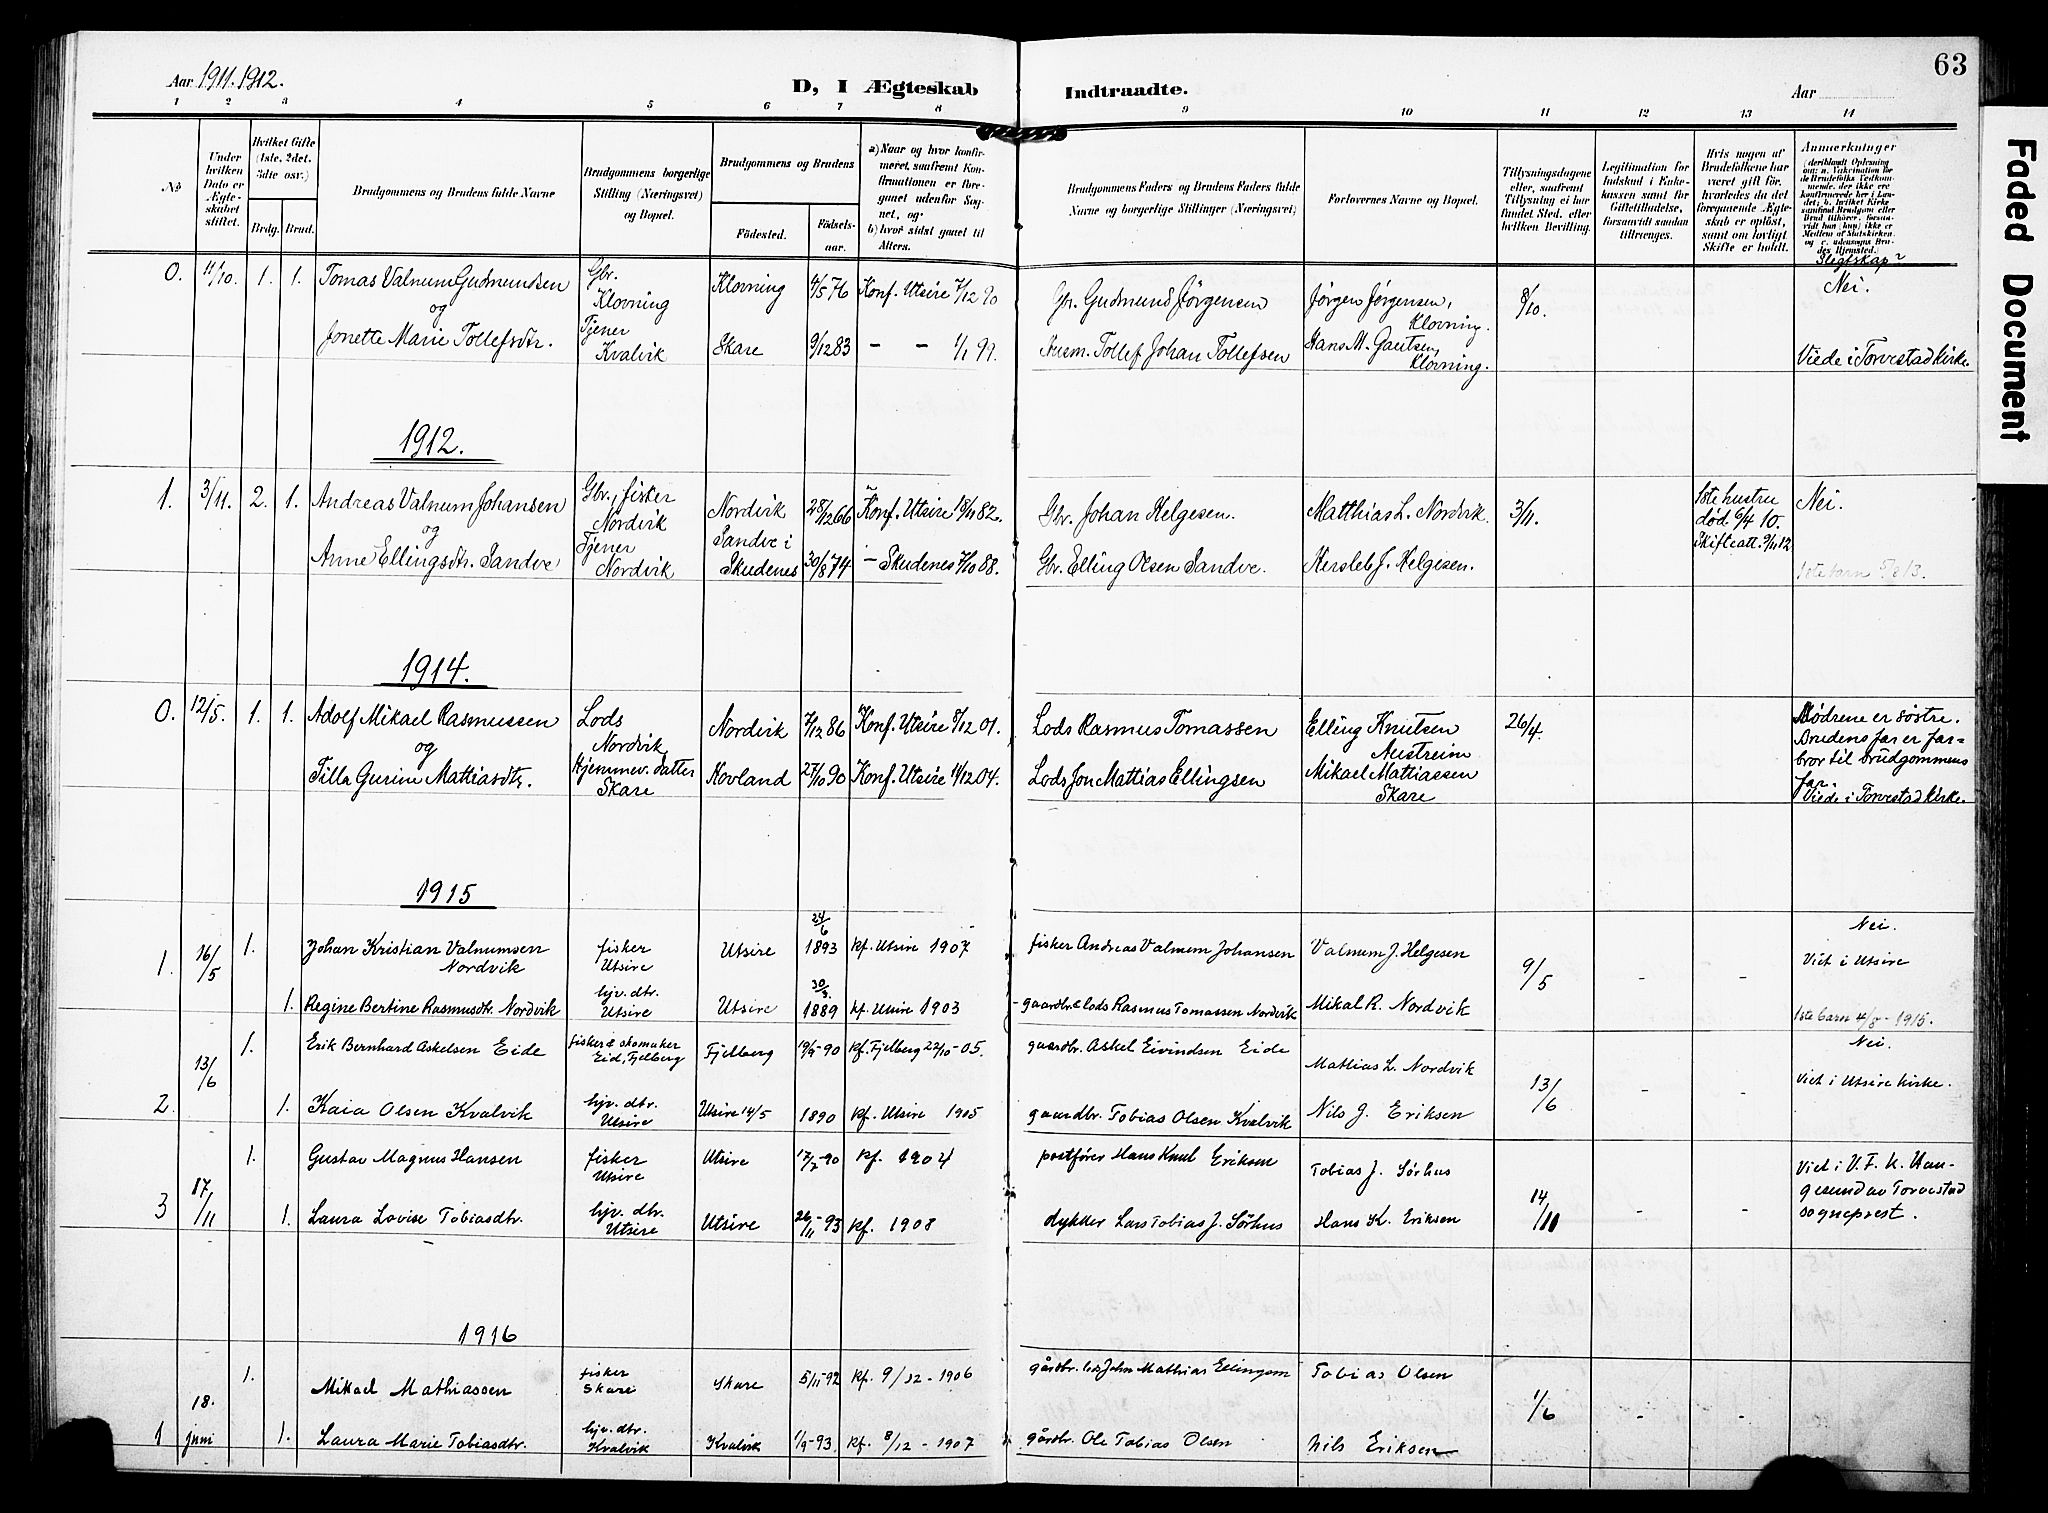 63
Aar 1911. 1912.
D, I Ægteskab Indtraadte.
Aar
1 2 3 4 5 6 7 8 9 10 11 12 13 14
No
Under hvilken Dato er Ægteskabet stiftet.
Hvilket Gifte (1ste, 2det, 3die osv.)
Brdg. Brud.
Brudgommens og Brudens fulde Navne
Brudgommens borgerlige Stilling (Næringsvei) og Bopæl.
Brudgommens og Brudens
Fødested.
Fødselsaar.
a) Naar og hvor konfirmeret, saafremt Konfirmationen er foregaaet udenfor Sognet, og
b) hvor sidst gaaet til Alters.
Brudgommens Faders og Brudens Faders fulde Navne og borgerlige Stillinger (Næringsvei)
Forlovernes Navne og Bopæl.
Tillysningsdagene eller, saafremt Tillysning ei har fundet Sted, efter hvilken Bevilling.
Legitimation for Indskud i Enkekassen samt for Giftetilladelse, forsaavidt saadan tiltrænges.
Hvis nogen af Brudefolkene har været gift før, hvorledes da det foregaaende Ægteskab er opløst, samt om lovligt Skifte er holdt.
Anmerkninger
Slegtskap?
0. 11/10. 1. 1. Tomas Valnum Gudmundsen Gbr. Klovning Klovning 4/5 76 Konf. Utsire 7/12 90 Gr. Gudmund Jørgensen Jørgen Jørgensen, Klovning. 8/10. Nei.
og
Jonette Marie Tollefsdtr. Tjener Kvalvik Skare 9/12 83 — — 1/1 99. Husm. Tollef Johan Tollefsen Hans M. Gautsen, Klovning. Viede i Torvestad kirke.
1912.
1. 3/11. 2. 1. Andreas Valnum Johansen Gbr., fisker Nordvik Nordvik 28/12 66 Konf. Utsire 18/11 82. Gbr. Johan Helgesen. Matthias L. Nordvik. 3/11. 1ste hustru død 6/4 10. Skifteatt. 9/11 12 Nei.
og
Anne Ellingsdtr. Sandve Tjener Nordvik Sandve i Skudenes 30/8 74 — Skudenes 7/10 88. Gbr. Elling Olsen Sandve. Hersleb J. Helgesen. 1ste barn 5/2 13.
1914.
0. 12/5. 1. 1. Adolf Mikael Rasmussen Lods Nordvik Nordvik 7/12 86 Konf. Utsire 8/12 01. Lods Rasmus Tomassen Elling Knutsen Austreim 26/4. Mødrene er søstre. Brudens far er farbror til brudgommens far.
og
Tilla Gurine Mattiasdtr. Hjemmev. datter Skare Hovland 27/10 90 Konf. Utsire 11/12 04. Lods Jon Mattias Ellingsen Mikael Mattiassen Skare Viede i Torvestad kirke.
1915
1. 16/5 1. Johan Kristian Valnumsen Nordvik fisker Utsire Utsire 24/6 1893 kf. Utsire 1907 fisker Andreas Valnum Johansen Valnum J. Helgesen 9/5 - - Nei. Viet i Utsire
1. Regine Bertine Rasmusdtr. Nordvik hjv. dtr. Utsire Utsire 30/3. 1889 kf. Utsire 1903 - gaardbr. & lods Rasmus Tomassen Nordvik Mikal R. Nordvik 1ste barn 4/8 - 1915.
2. 13/6 1. Erik Bernhard Askelsen Eide fisker & skomaker Eid, Fjelberg Fjelberg 19/9-90 kf. Fjelberg 22/10-05. gaardbr. Askel Eivindsen Eide Mathias L. Nordvik 13/6 - - Nei. Viet i Utsire kirke.
1. Kaia Olsen Kvalvik hjv. dtr. Utsire Utsire 14/5 1890 kf. Utsire 1905 gaardbr. Tobias Olsen Kvalvik Nils J. Eriksen
3 17/11 1. Gustav Magnus Hansen fisker Utsire Utsire 17/7-90 kf. 1904 postfører Hans Knut Eriksen Tobias J. Sørhus 14/11 - - Viet i V. F. k. Haugesund av Torvestad sogneprest.
1. Laura Lovise Tobiasdtr. hjv. dtr. Utsire Utsire 26/11-93 kf. 1908 dykker Lars Tobias J. Sørhus Hans K. Eriksen
1916
1 18. juni 1. Mikael Mathiassen fisker Skare Skare 5/11-92 kf. 9/12 - 1906 gårdbr. lods John Mathias Ellingsen Tobias Olsen 1/6 - -
1. Laura Marie Tobiasdtr. hjv. dtr. Kvalvik Kvalvik 1/9-93 kf. 8/12 - 1907 gårdbr. Ole Tobias Olsen Nils Eriksen
Faded Document